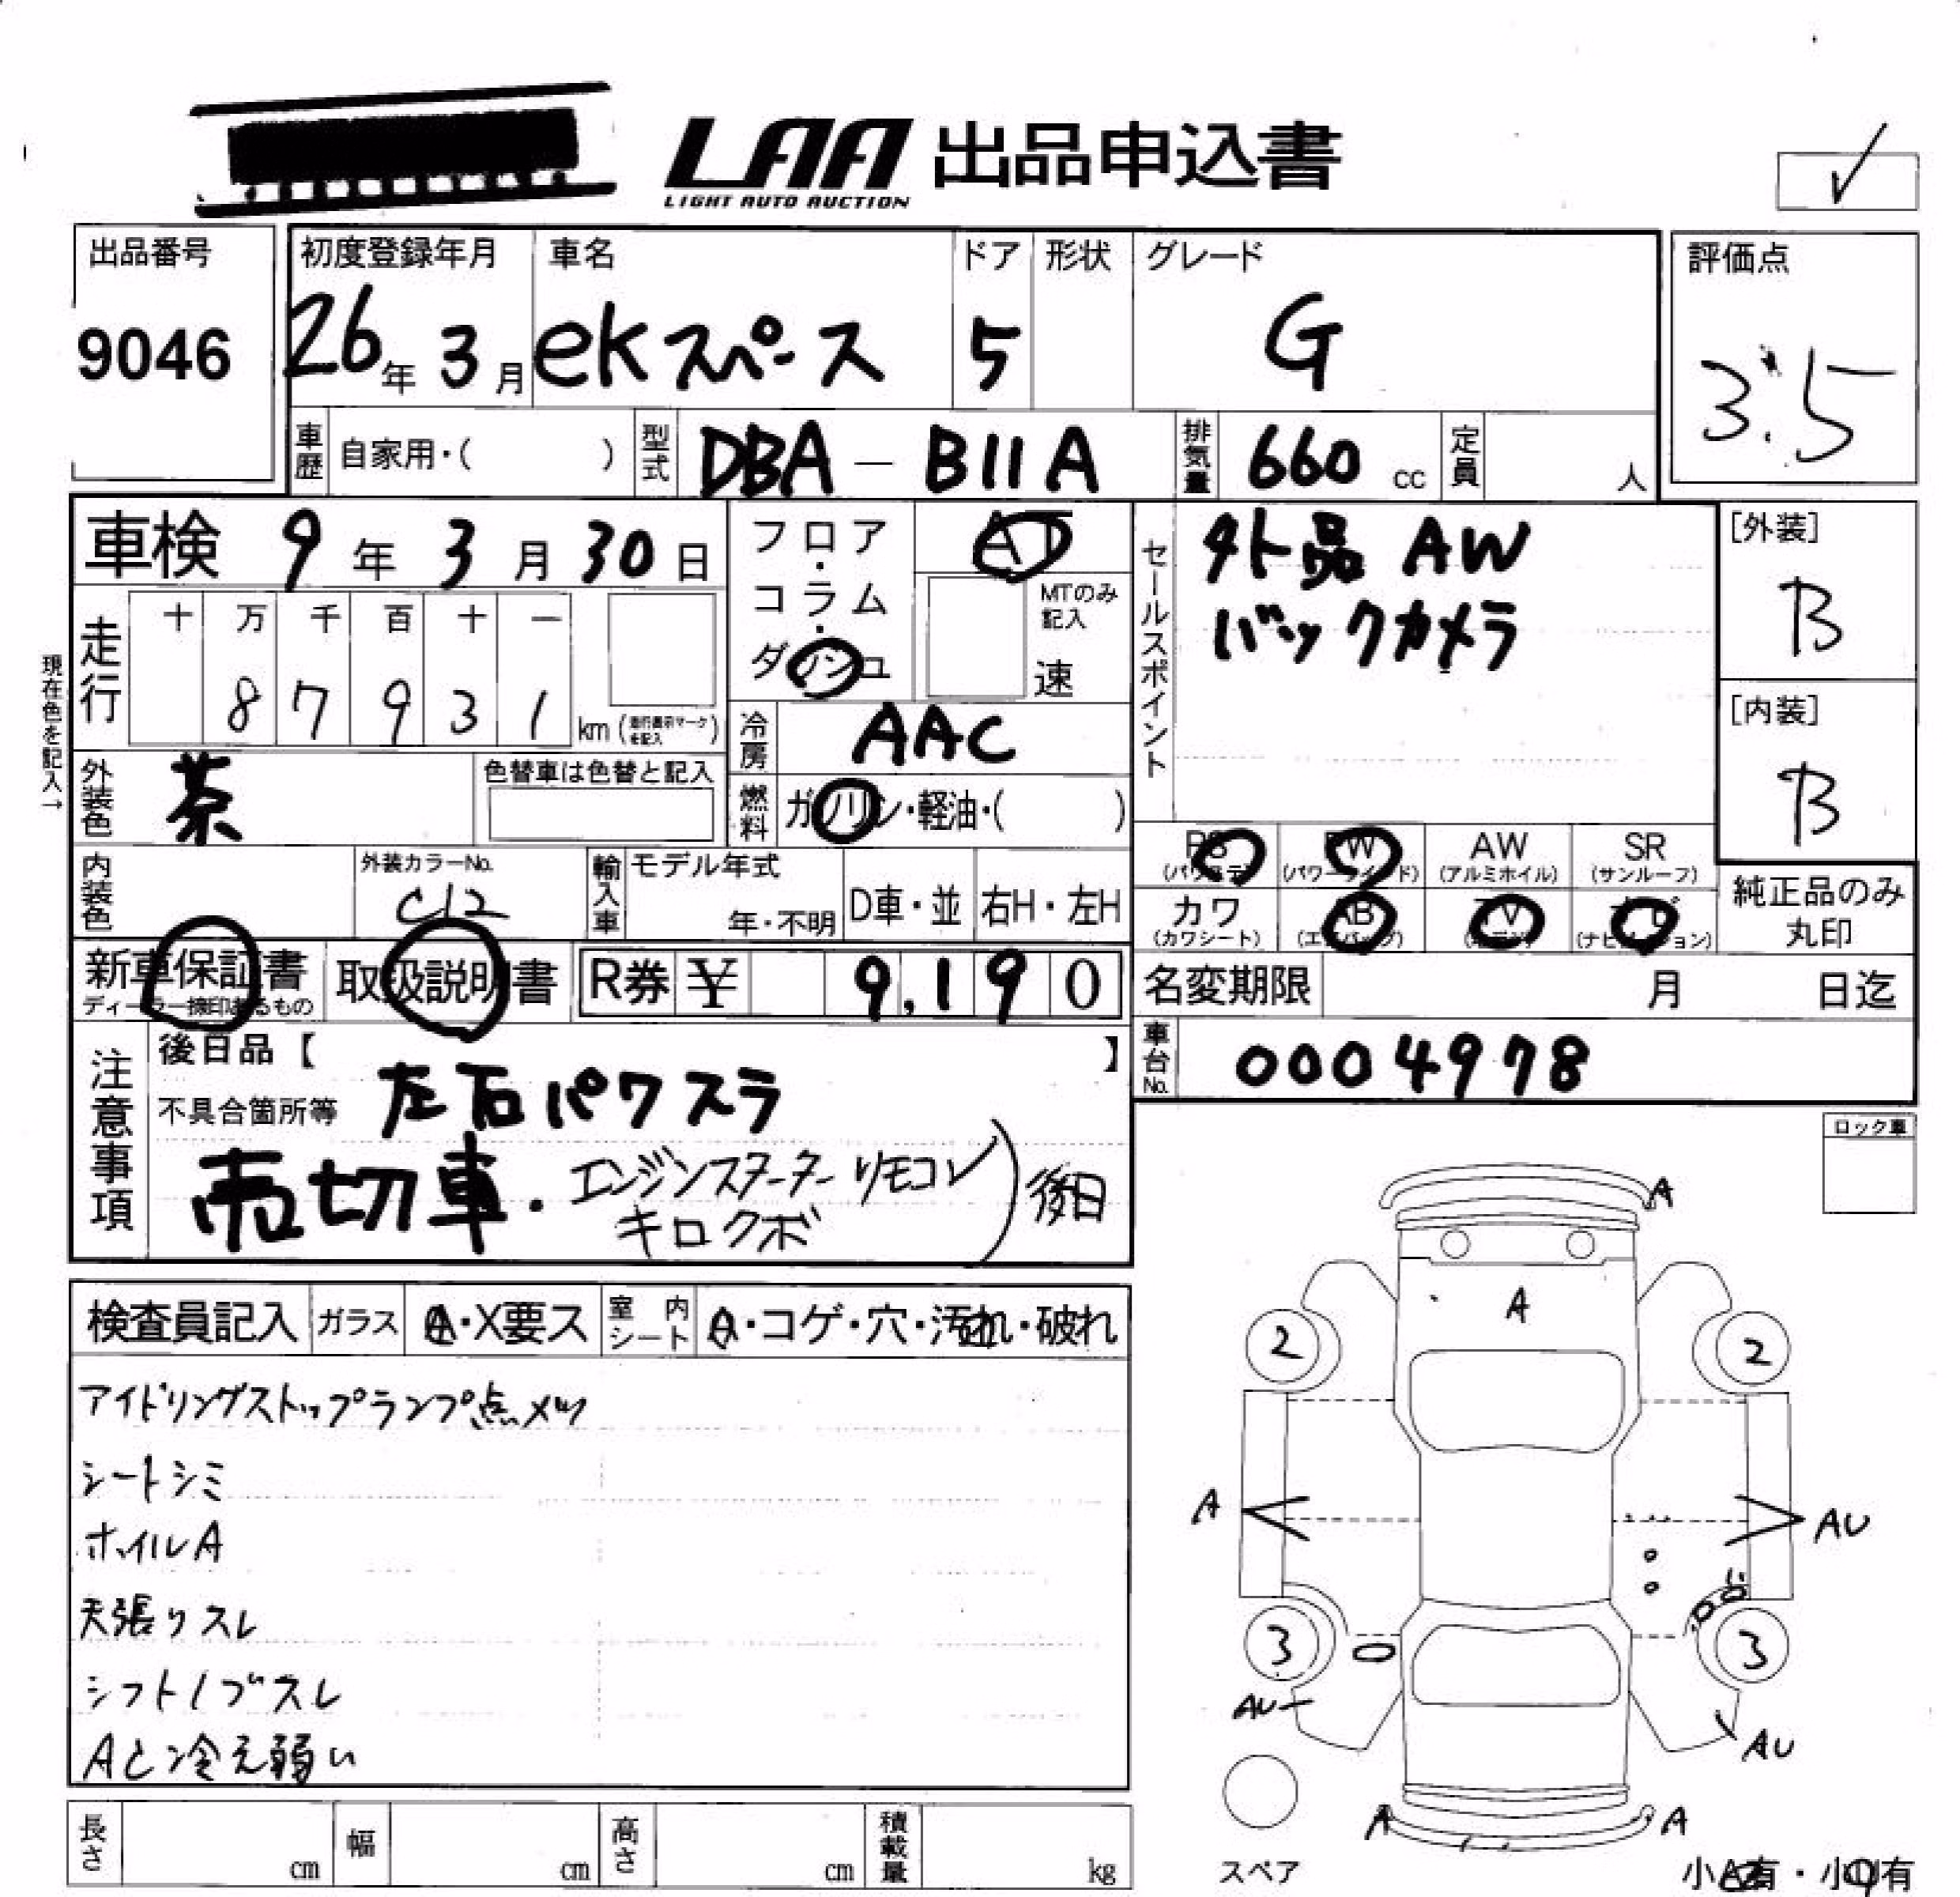 LAA 出品申込書
LIGHT AUTO AUCTION
出品番号
9046
初度登録年月
26年 3月
車名
ekスペース
ドア
5
形状
グレード
G
評価点
3.5
車歴 自家用・( )
型式 DBA - B11A
排気量 660 cc
定員 人
車検 9年 3月 30日
フロア・コラム・ダッシュ
AT
MTのみ記入
速
走行
十 万 千 百 十 一
8 7 9 3 1 km
現在色を記入→
冷房 AAC
外装色 茶
色替車は色替と記入
燃料 ガソリン・軽油・( )
内装色
外装カラーNo.
C12
輸入車 モデル年式
年・不明
D車・並
右H・左H
セールスポイント
外品 AW
バックカメラ
[外装]
B
[内装]
B
PS PW AW SR
(パワステ) (パワーウィンド) (アルミホイル) (サンルーフ)
カワ AB TV ナビ
(カワシート) (エアバッグ) (ナビゲーション)
純正品のみ
丸印
新車保証書
ディーラー捺印あるもの
取扱説明書
R券 ¥ 9,190
名変期限 月 日迄
車台No. 0004978
注意事項
後日品【 】
不具合箇所等 左右パワスラ
売切車・エンジンスターターリモコン
キロクボ
)後日
ロック車
検査員記入 ガラス A・X要ス
室内シート A・コゲ・穴・汚れ・破れ
アイドリングストップランプ点メツ
シートシミ
ホイルA
天張りスレ
シフトノブスレ
A/C冷え弱い
A
A
2 2
A AU
3 3
AU AU
A A
スペア
小A有・小U有
長さ cm
幅 cm
高さ cm
積載量 kg